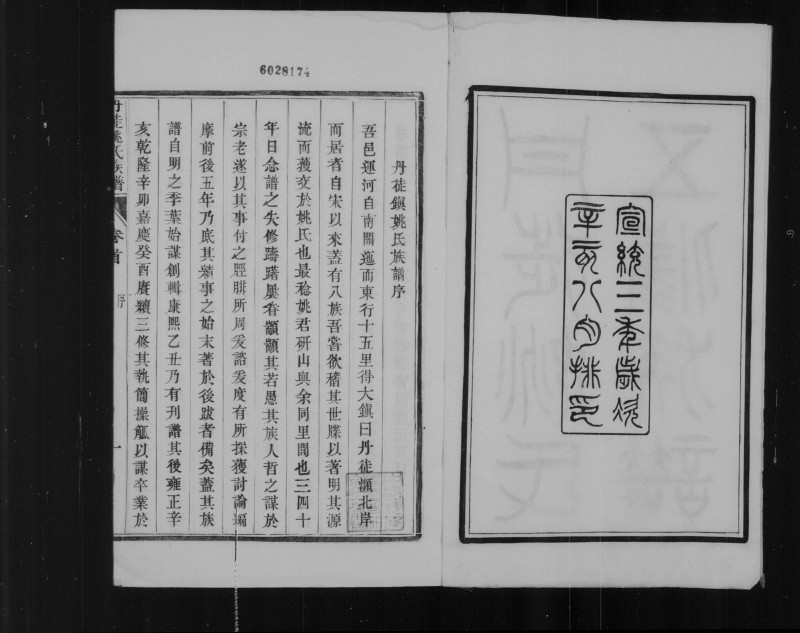 宣統三年歲次
辛亥八月排印
6028174
丹徒鎮姚氏族譜序
吾邑運河自南閘迤而東行十五里得大鎮曰丹徒瀕北岸
而居者自宋以來蓋有八族吾嘗欲稽其世牒以著明其源
流而獲交於姚氏也最稔姚君研山與余同里閈也三四十
年日念譜之失修躊躇屢眷顓顓其若愚其族人哲之謀於
宗老遂以其事付之歷聘所周爰諮爰度有所採獲討論編
摩前後五年乃底其績事之始末著於後跋者備矣蓋其族
譜自明之季葉始謀創輯康熙乙丑乃有刊譜其後雍正辛
亥乾隆辛卯嘉慶癸酉賡續三修其執簡操觚以謀卒業於
丹徒姚氏族譜
卷首
序
一